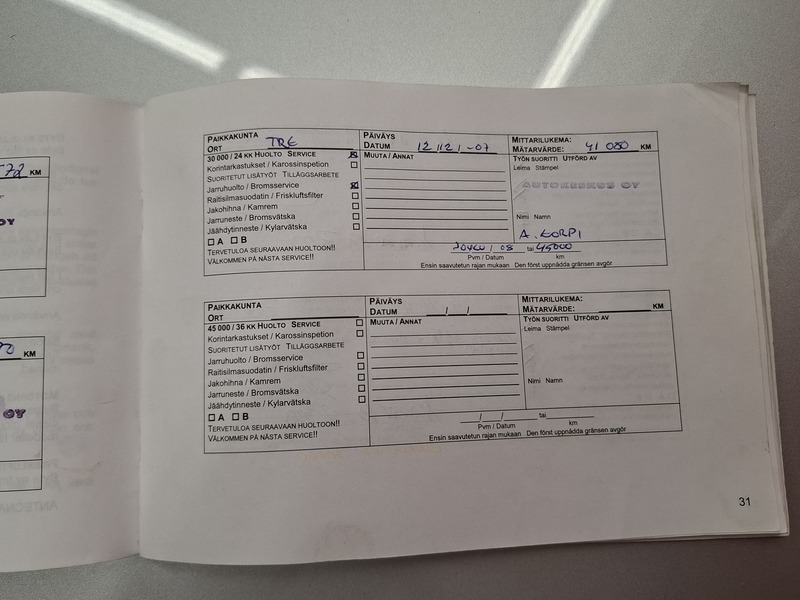 572 KM
OY
KM
OY
PAIKKAKUNTA
ORT TRE
PÄIVÄYS
DATUM 12/12/-07
MITTARILUKEMA:
MÄTARVÄRDE: 41 080 KM
30 000 / 24 KK HUOLTO SERVICE
Korintarkastukset / Karossinspetion
SUORITETUT LISÄTYÖT TILLÄGGSARBETE
Jarruhuolto / Bromsservice
Raitisilmasuodatin / Friskluftsfilter
Jakohihna / Kamrem
Jarruneste / Bromsvätska
Jäähdytinneste / Kylarvätska
A B
TERVETULOA SEURAAVAAN HUOLTOON!!
VÄLKOMMEN PÅ NÄSTA SERVICE!!
MUUTA / ANNAT
TYÖN SUORITTI UTFÖRD AV
Leima Stämpel
AUTOKESKUS OY
Nimi Namn
A. KORPI
/ 08 tai 45000
Pvm / Datum km
Ensin saavutetun rajan mukaan Den först uppnådda gränsen avgör
PAIKKAKUNTA
ORT
PÄIVÄYS
DATUM / /
MITTARILUKEMA:
MÄTARVÄRDE: KM
45 000 / 36 KK HUOLTO SERVICE
Korintarkastukset / Karossinspetion
SUORITETUT LISÄTYÖT TILLÄGGSARBETE
Jarruhuolto / Bromsservice
Raitisilmasuodatin / Friskluftsfilter
Jakohihna / Kamrem
Jarruneste / Bromsvätska
Jäähdytinneste / Kylarvätska
A B
TERVETULOA SEURAAVAAN HUOLTOON!!
VÄLKOMMEN PÅ NÄSTA SERVICE!!
MUUTA / ANNAT
TYÖN SUORITTI UTFÖRD AV
Leima Stämpel
Nimi Namn
/ / tai
Pvm / Datum km
Ensin saavutetun rajan mukaan Den först uppnådda gränsen avgör
31